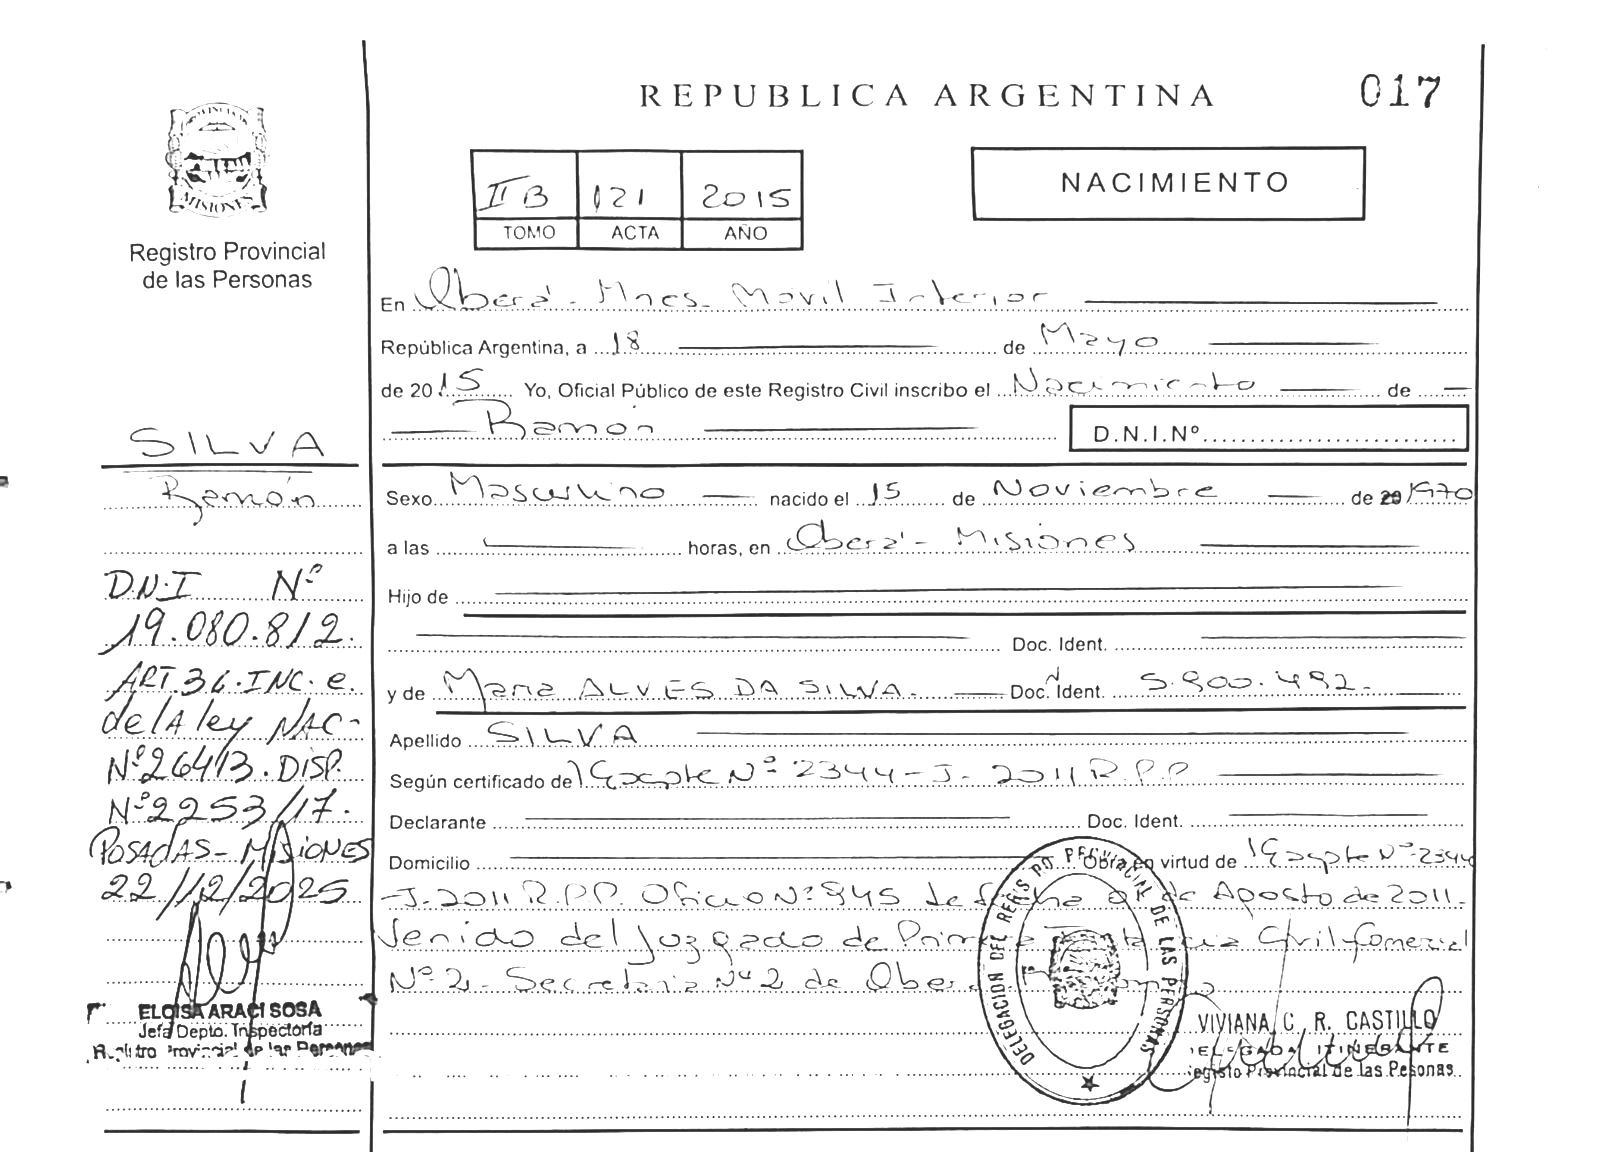 REPUBLICA ARGENTINA
017
PROVINCIA DE
MISIONES
Registro Provincial
de las Personas
II B 121 2015
TOMO ACTA AÑO
NACIMIENTO
En Oberá - Mnes. Movil Interior
República Argentina, a 18 de Mayo
de 2015 Yo, Oficial Público de este Registro Civil inscribo el Nacimiento de
Ramón
D.N.I.Nº
Sexo Masculino nacido el 15 de Noviembre de 20 1970
a las horas, en Oberá - Misiones
Hijo de
Doc. Ident.
y de Maria ALVES DA SILVA. Doc. Ident. 5.900.492.
Apellido SILVA
Según certificado de Expte Nº 2344-J- 2011 R.P.P
Declarante Doc. Ident.
Domicilio Obra en virtud de Expte Nº 2344
-J. 2011 R.P.P. Oficio Nº 945 de fecha de Agosto de 2011.
Venido del Juzgado de Primera Civil y Comercial
Nº 2 - Secretaria Nº 2 de
SILVA
Ramón
D.N.I Nº
19.080.812.
ART. 36. INC. e.
de lA ley NAC-
Nº 26413. DISP.
Nº 2253/17.
POSADAS - MISIONES
22/12/2025
ELOISA ARACI SOSA
Jefa Depto. Inspectoría
Registro Provincial de las Personas
DELEGACION DEL REGISTRO PROVINCIAL DE LAS PERSONAS
VIVIANA C. R. CASTILLO
DELEGADA ITINERANTE
Registo Provincial de las Pesonas